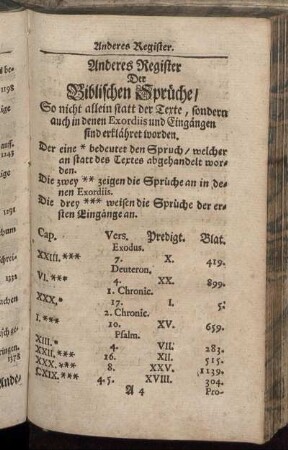 Anderes Register.
Anderes Register
Der
Biblischen Sprüche/
So nicht allein statt der Texte, sondern
auch in denen Exordiis und Eingängen
sind erkläret worden.
Der eine * bedeutet den Spruch/ welcher
an statt des Textes abgehandelt wor-
den.
Die zwey ** zeigen die Sprüche an in de-
nen Exordiis.
Die drey *** weisen die Sprüche der er-
sten Eingänge an.
Cap. Vers. Predigt. Blat.
Exodus.
XXIII.*** 7. X. 419.
Deuteron.
VI.** 4. XX. 899.
1. Chronic.
XXX.* 17. I. 5.
2. Chronic.
I.*** 10. XV. 659.
Psalm.
XIII.* 4. VII. 283.
XXII.*** 16. XII. 515.
XXX.*** 8. XXV. 1139.
CXIX.*** 4.5. XVIII. 304.
A 4 Pro-